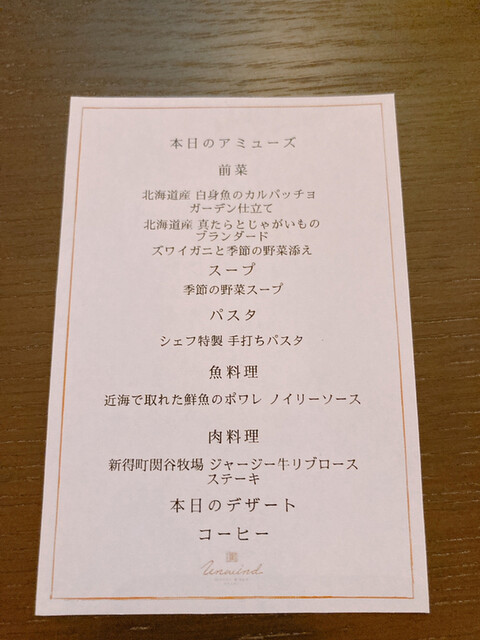 本日のアミューズ
前菜
北海道産 白身魚のカルパッチョ
ガーデン仕立て
北海道産 真たらとじゃがいもの
ブランダード
ズワイガニと季節の野菜添え
スープ
季節の野菜スープ
パスタ
シェフ特製 手打ちパスタ
魚料理
近海で取れた鮮魚のポワレ ノイリーソース
肉料理
新得町関谷牧場 ジャージー牛リブロース
ステーキ
本日のデザート
コーヒー
Unwind